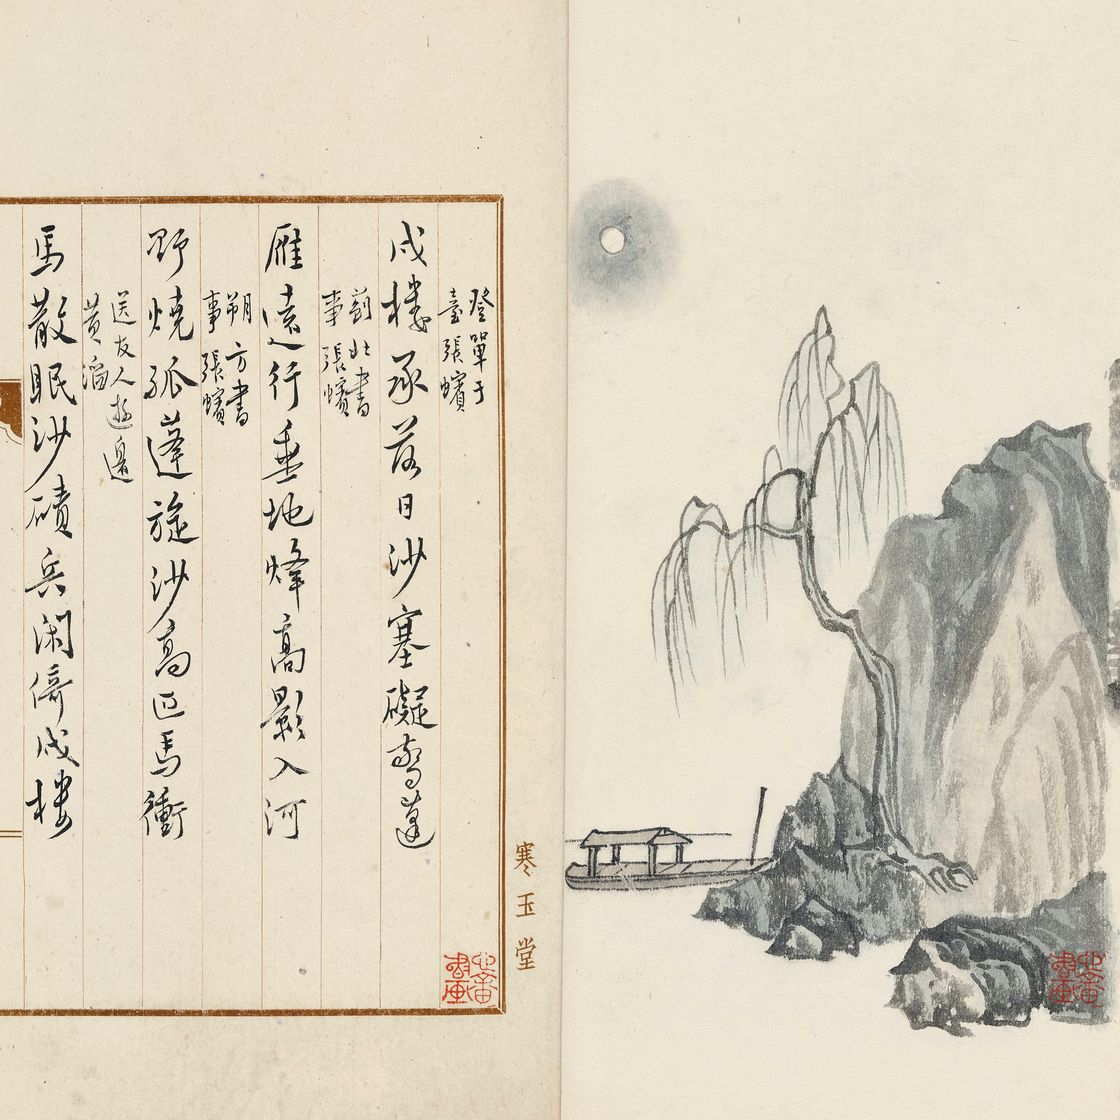 登單于
臺張蠙
戍樓承落日沙塞礙驚蓬
薊北書
事張蠙
雁遠行垂地烽高影入河
朔方書
事張蠙
野燒孤蓬旋沙高匹馬衝
送友人遊邊
黃滔
馬散眠沙磧兵閑倚戍樓
寒玉堂
心畬書畫
心畬書畫